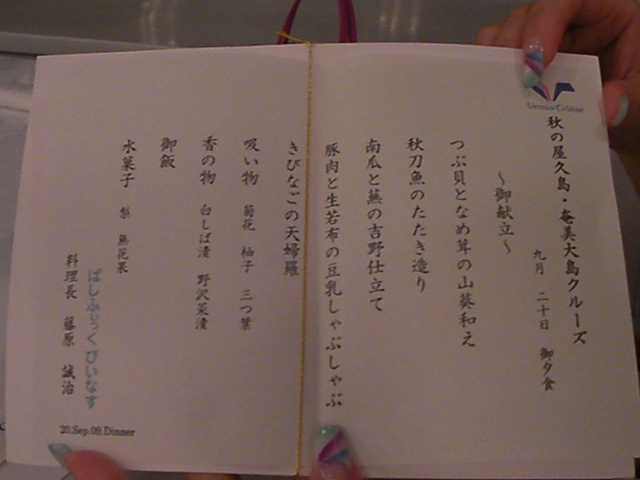 Venus Cruise
秋の屋久島・奄美大島クルーズ
九月 二十日 御夕食
～御献立～
つぶ貝となめ茸の山葵和え
秋刀魚のたたき造り
南瓜と蕪の吉野仕立て
豚肉と生若布の豆乳しゃぶしゃぶ
きびなごの天婦羅
吸い物 菊花 柚子 三つ葉
香の物 白しば漬 野沢菜漬
御飯
水菓子 梨 無花果
ぱしふぃっく びいなす
料理長 藤原 誠治
20.Sep.09.Dinner